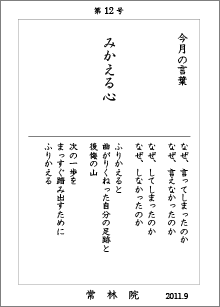 第12号
今月の言葉
みかえる心
なぜ、言ってしまったのか
なぜ、言えなかったのか
なぜ、してしまったのか
なぜ、しなかったのか
ふりかえると
曲がりくねった自分の足跡と
後悔の山
次の一歩を
まっすぐ踏み出すために
ふりかえる
常林院
2011.9